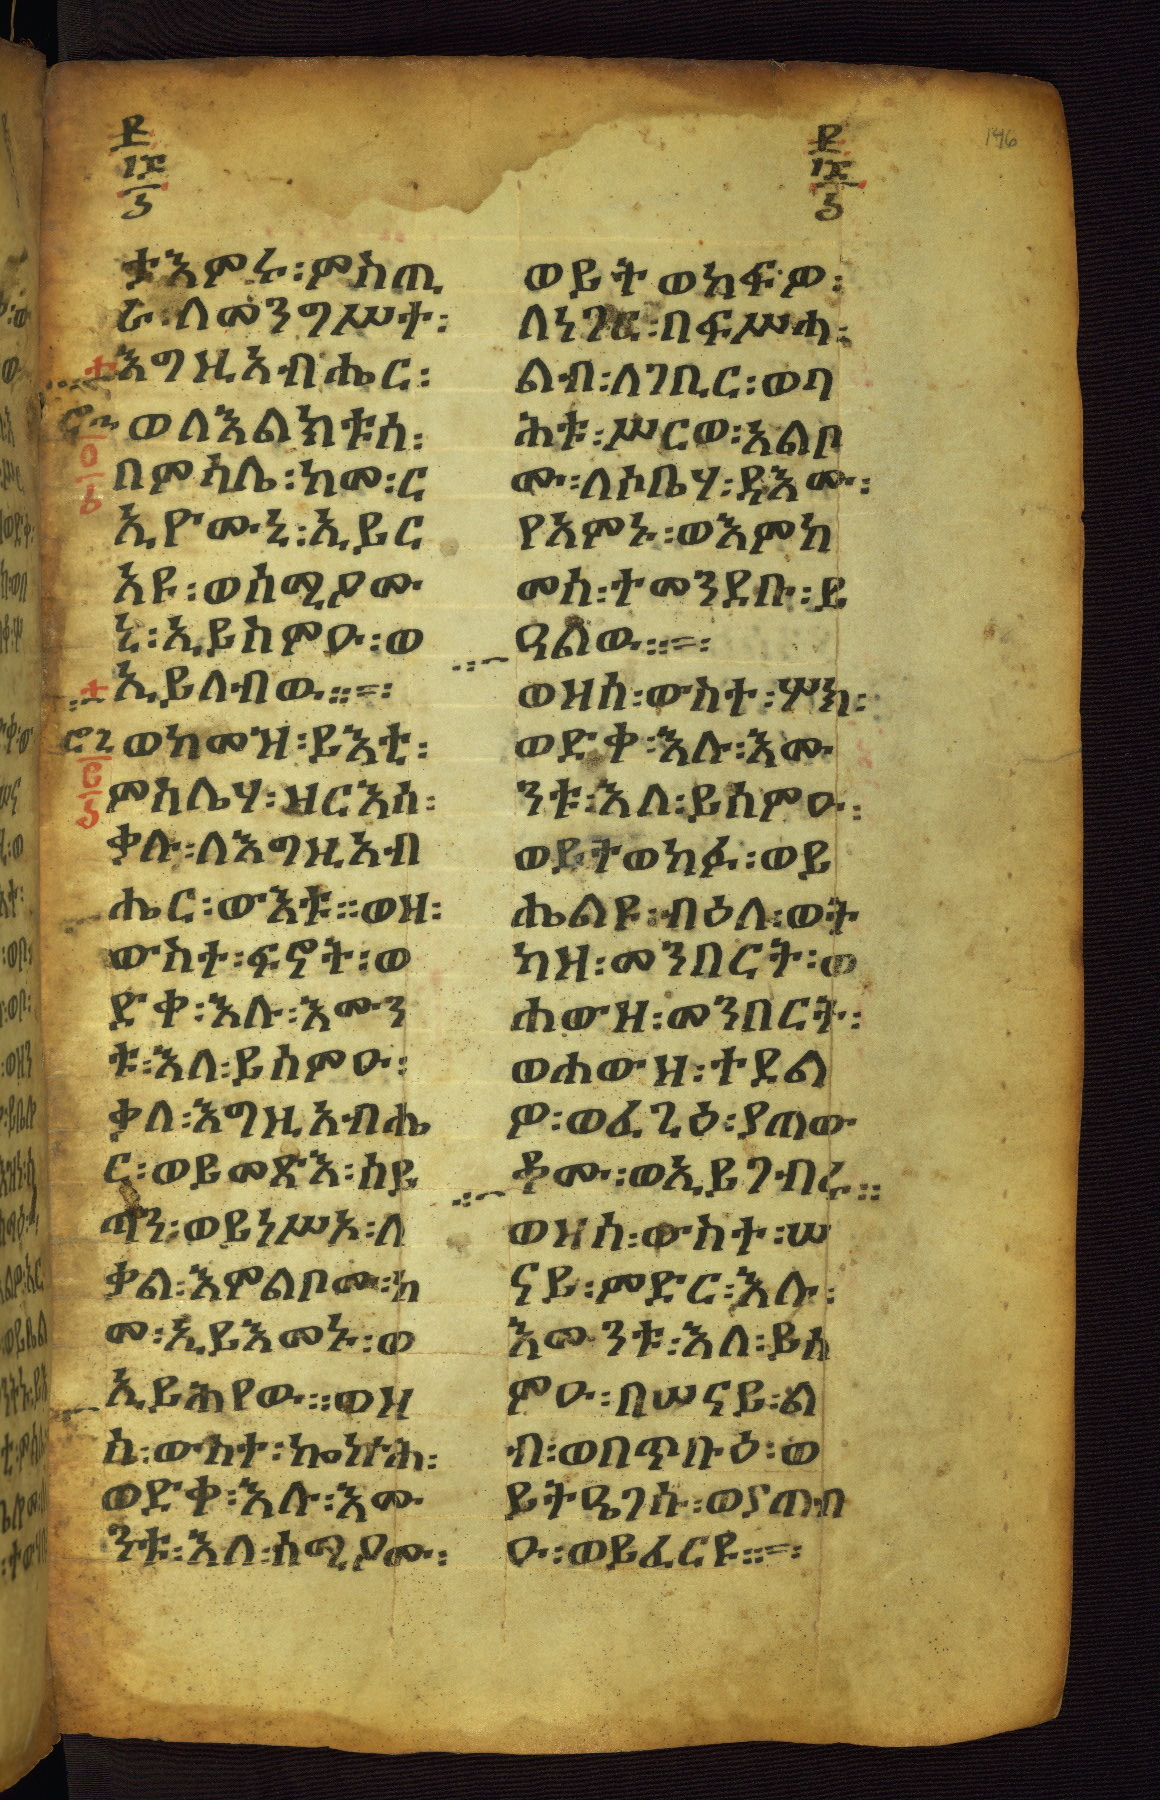 ታእምሩ፡ምስጢ
ራ፡ለመንግሥተ፡
እግዚአብሔር፡
ወለእልክቱሰ፡
በምሳሌ፡ከመ፡ር
እዮሙኒ፡ኢይር
አዩ፡ወሰሚዖሙ
ኒ፡ኢይስምዑ፡ወ
ኢይለብዉ።
ወከመዝ፡ይእቲ፡
ምሳሌሃ፡ዘርእሰ፡
ቃሉ፡ለእግዚአብ
ሔር፡ውእቱ፡፡ወዘ፡
ውስተ፡ፍኖት፡ወ
ድቀ፡እሉ፡እሙን
ቱ፡እለ፡ይሰምዑ፡
ቃለ፡እግዚአብሔ
ር፡ወይመጽእ፡ሰይ
ጣን፡ወይነሥእ፡ለ
ቃል፡እምልቦሙ፡ከ
መ፡ኢይእመኑ፡ወ
ኢይሕየዉ፡፡ወዘ
ሰ፡ውስተ፡ኰኵሕ፡
ወድቀ፡እሉ፡እሙ
ንቱ፡እለ፡ሰሚዖሙ፡
ወይትወከፍዎ፡
ለነገር፡በፍሥሓ፡
ልብ፡ለገቢር፡ወባ
ሕቱ፡ሥርወ፡አልቦ
ሙ፡ለሶቤሃ፡ዳእሙ፡
የአምኑ፡ወእምከ
መሰ፡ተመንደቡ፡ይ
ዓልዉ።
ወዘሰ፡ውስተ፡ሦክ፡
ወድቀ፡እሉ፡እሙ
ንቱ፡እለ፡ይሰምዑ፡
ወይትወከፉ፡ወይ
ሔልዩ፡ብዕለ፡ወት
ካዘ፡መንበርት፡ወ
ሐውዘ፡መንበርት፡
ወሐውዘ፡ተደል
ዎ፡ወፈጊዕ፡ያጠው
ቆሙ፡ወኢይገብሩ፡፡
ወዘሰ፡ውስተ፡ሠ
ናይ፡ምድር፡እሉ፡
እሙንቱ፡እለ፡ይሰ
ምዑ፡በሠናይ፡ል
ብ፡ወበጥቡዕ፡ወ
ይትዔገሱ፡ወያጠብ
ዑ፡ወይፈርዩ።
146